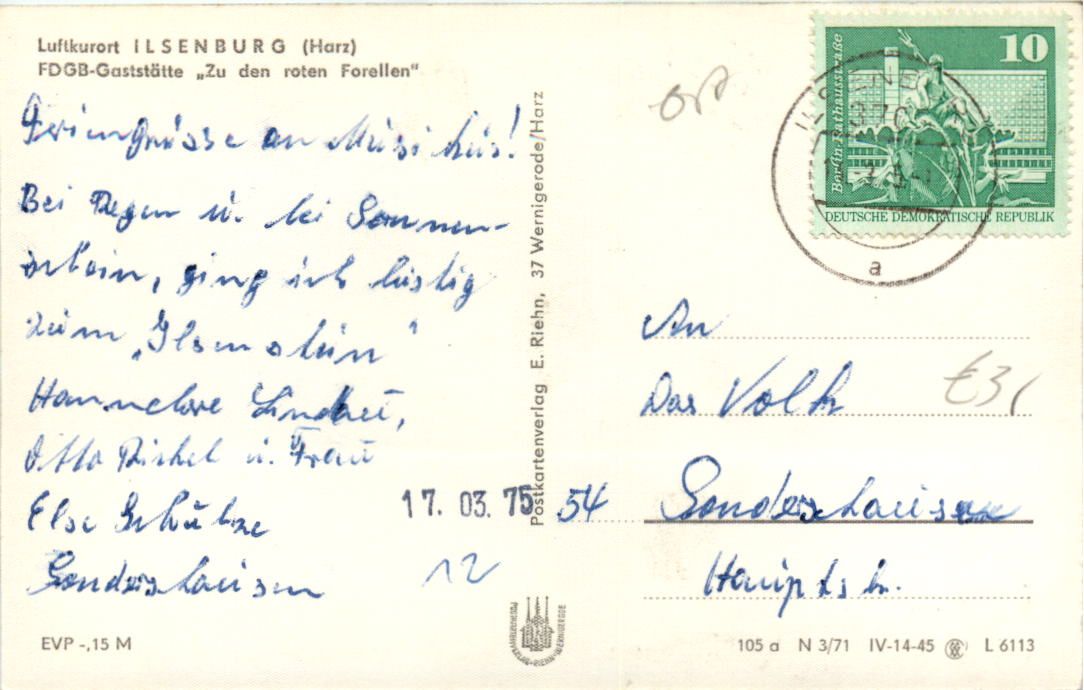 Luftkurort ILSENBURG (Harz)
FDGB-Gaststätte „Zu den roten Forellen"
Feriengrüsse an Musikus!
Bei Regen u. bei Sonnen-
schein, ging ich lustig
zum „Ilsenstein"
Hannelore
Otto Michel u. Frau
Else Schütze
Sondershausen
EVP -,15 M
17. 03. 75
12
Postkartenverlag E. Riehn, 37 Wernigerode/Harz
POSTKARTENVERLAG·RIEHN·WERNIGERODE
ort
10
Berlin, Rathausstraße
DEUTSCHE DEMOKRATISCHE REPUBLIK
ILSENBURG
3705
a
An
Das Volk
€3,
54 Sondershausen
Hauptstr.
105 a N 3/71 IV-14-45 L 6113